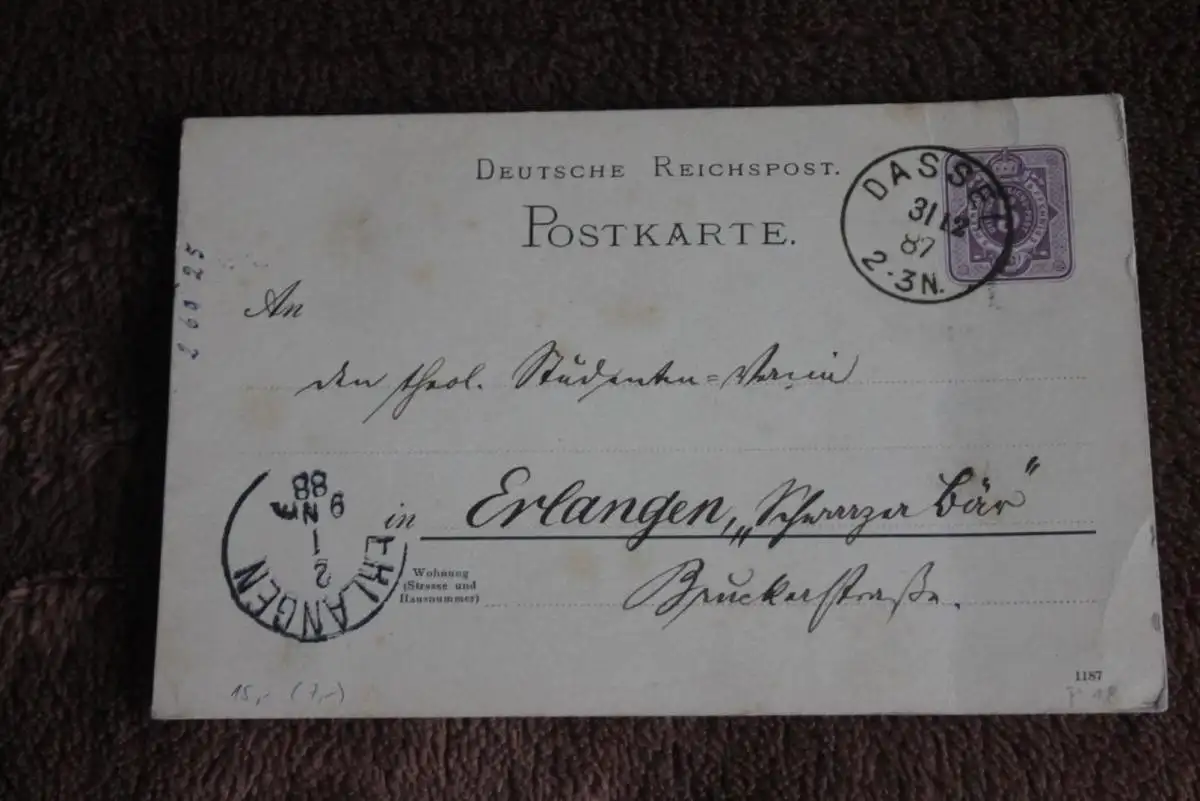 DEUTSCHE REICHSPOST.
POSTKARTE.
DASSEL
31 12
87
2-3N.
260 25
An
den theol. Studenten=Verein
in Erlangen, „Schwarzer Bär“
Wohnung
(Strasse und
Hausnummer)
Bruckerstraße.
ERLANGEN
2
1
9 N
88
15,- (7,-)
1187